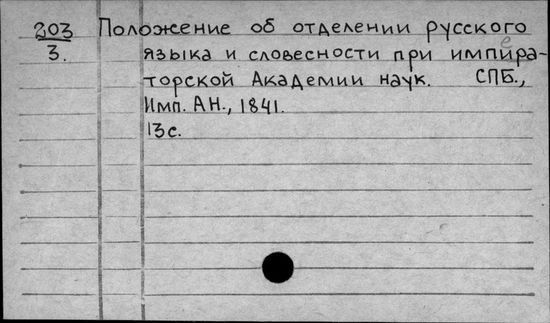 203 Положение об отделении русского
3. языка и словесности при импера-
торской Академии наук. СПБ.,
Имп. АН., 1841.
13 с.